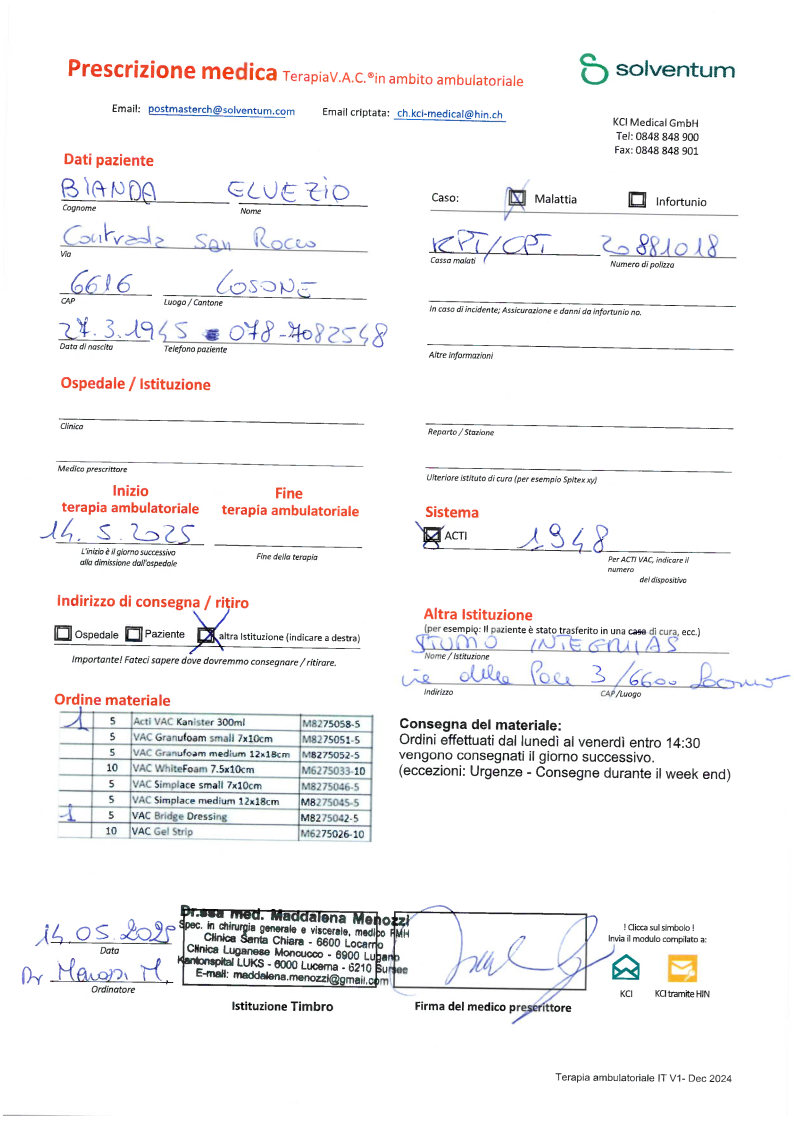 Prescrizione medica TerapiaV.A.C.®in ambito ambulatoriale
solventum
Email: postmasterch@solventum.com Email criptata: ch.kci-medical@hin.ch
KCI Medical GmbH
Tel: 0848 848 900
Fax: 0848 848 901
Dati paziente
BIANDA ELVEZIO
Cognome Nome
Caso: Malattia Infortunio
Contrada San Rocco
Via
KPT/CPT 20881018
Cassa malati Numero di polizza
6616 LOSONE
CAP Luogo / Cantone
In caso di incidente; Assicurazione e danni da infortunio no.
27.3.1945 078-7082548
Data di nascita Telefono paziente
Altre informazioni
Ospedale / Istituzione
Clinica
Reparto / Stazione
Medico prescrittore
Ulteriore istituto di cura (per esempio Spitex xy)
Inizio
terapia ambulatoriale
Fine
terapia ambulatoriale
14.5.2025
L'inizio è il giorno successivo
alla dimissione dall'ospedale
Fine della terapia
Sistema
ACTI 1948
Per ACTI VAC, indicare il
numero
del dispositivo
Indirizzo di consegna / ritiro
Ospedale Paziente altra Istituzione (indicare a destra)
Importante! Fateci sapere dove dovremmo consegnare / ritirare.
Altra Istituzione
(per esempio: Il paziente è stato trasferito in una casa di cura, ecc.)
INTEGRITAS
Nome / Istituzione
via della Pace 3 /6600 Locarno
Indirizzo CAP/Luogo
Ordine materiale
1 5 Acti VAC Kanister 300ml M8275058-5
5 VAC Granufoam small 7x10cm M8275051-5
5 VAC Granufoam medium 12x18cm M8275052-5
10 VAC WhiteFoam 7.5x10cm M6275033-10
5 VAC Simplace small 7x10cm M8275046-5
5 VAC Simplace medium 12x18cm M8275045-5
1 5 VAC Bridge Dressing M8275042-5
10 VAC Gel Strip M6275026-10
Consegna del materiale:
Ordini effettuati dal lunedì al venerdì entro 14:30
vengono consegnati il giorno successivo.
(eccezioni: Urgenze - Consegne durante il week end)
14.05.2025
Data
Dr Menozzi M.
Ordinatore
Dr.ssa med. Maddalena Menozzi
Spec. in chirurgia generale e viscerale, medico FMH
Clinica Santa Chiara - 6600 Locarno
Clinica Luganese Moncucco - 6900 Lugano
Kantonspital LUKS - 6000 Lucerna - 6210 Sursee
E-mail: maddalena.menozzi@gmail.com
Istituzione Timbro
Firma del medico prescrittore
! Clicca sul simbolo !
Invia il modulo compilato a:
KCI KCI tramite HIN
Terapia ambulatoriale IT V1- Dec 2024